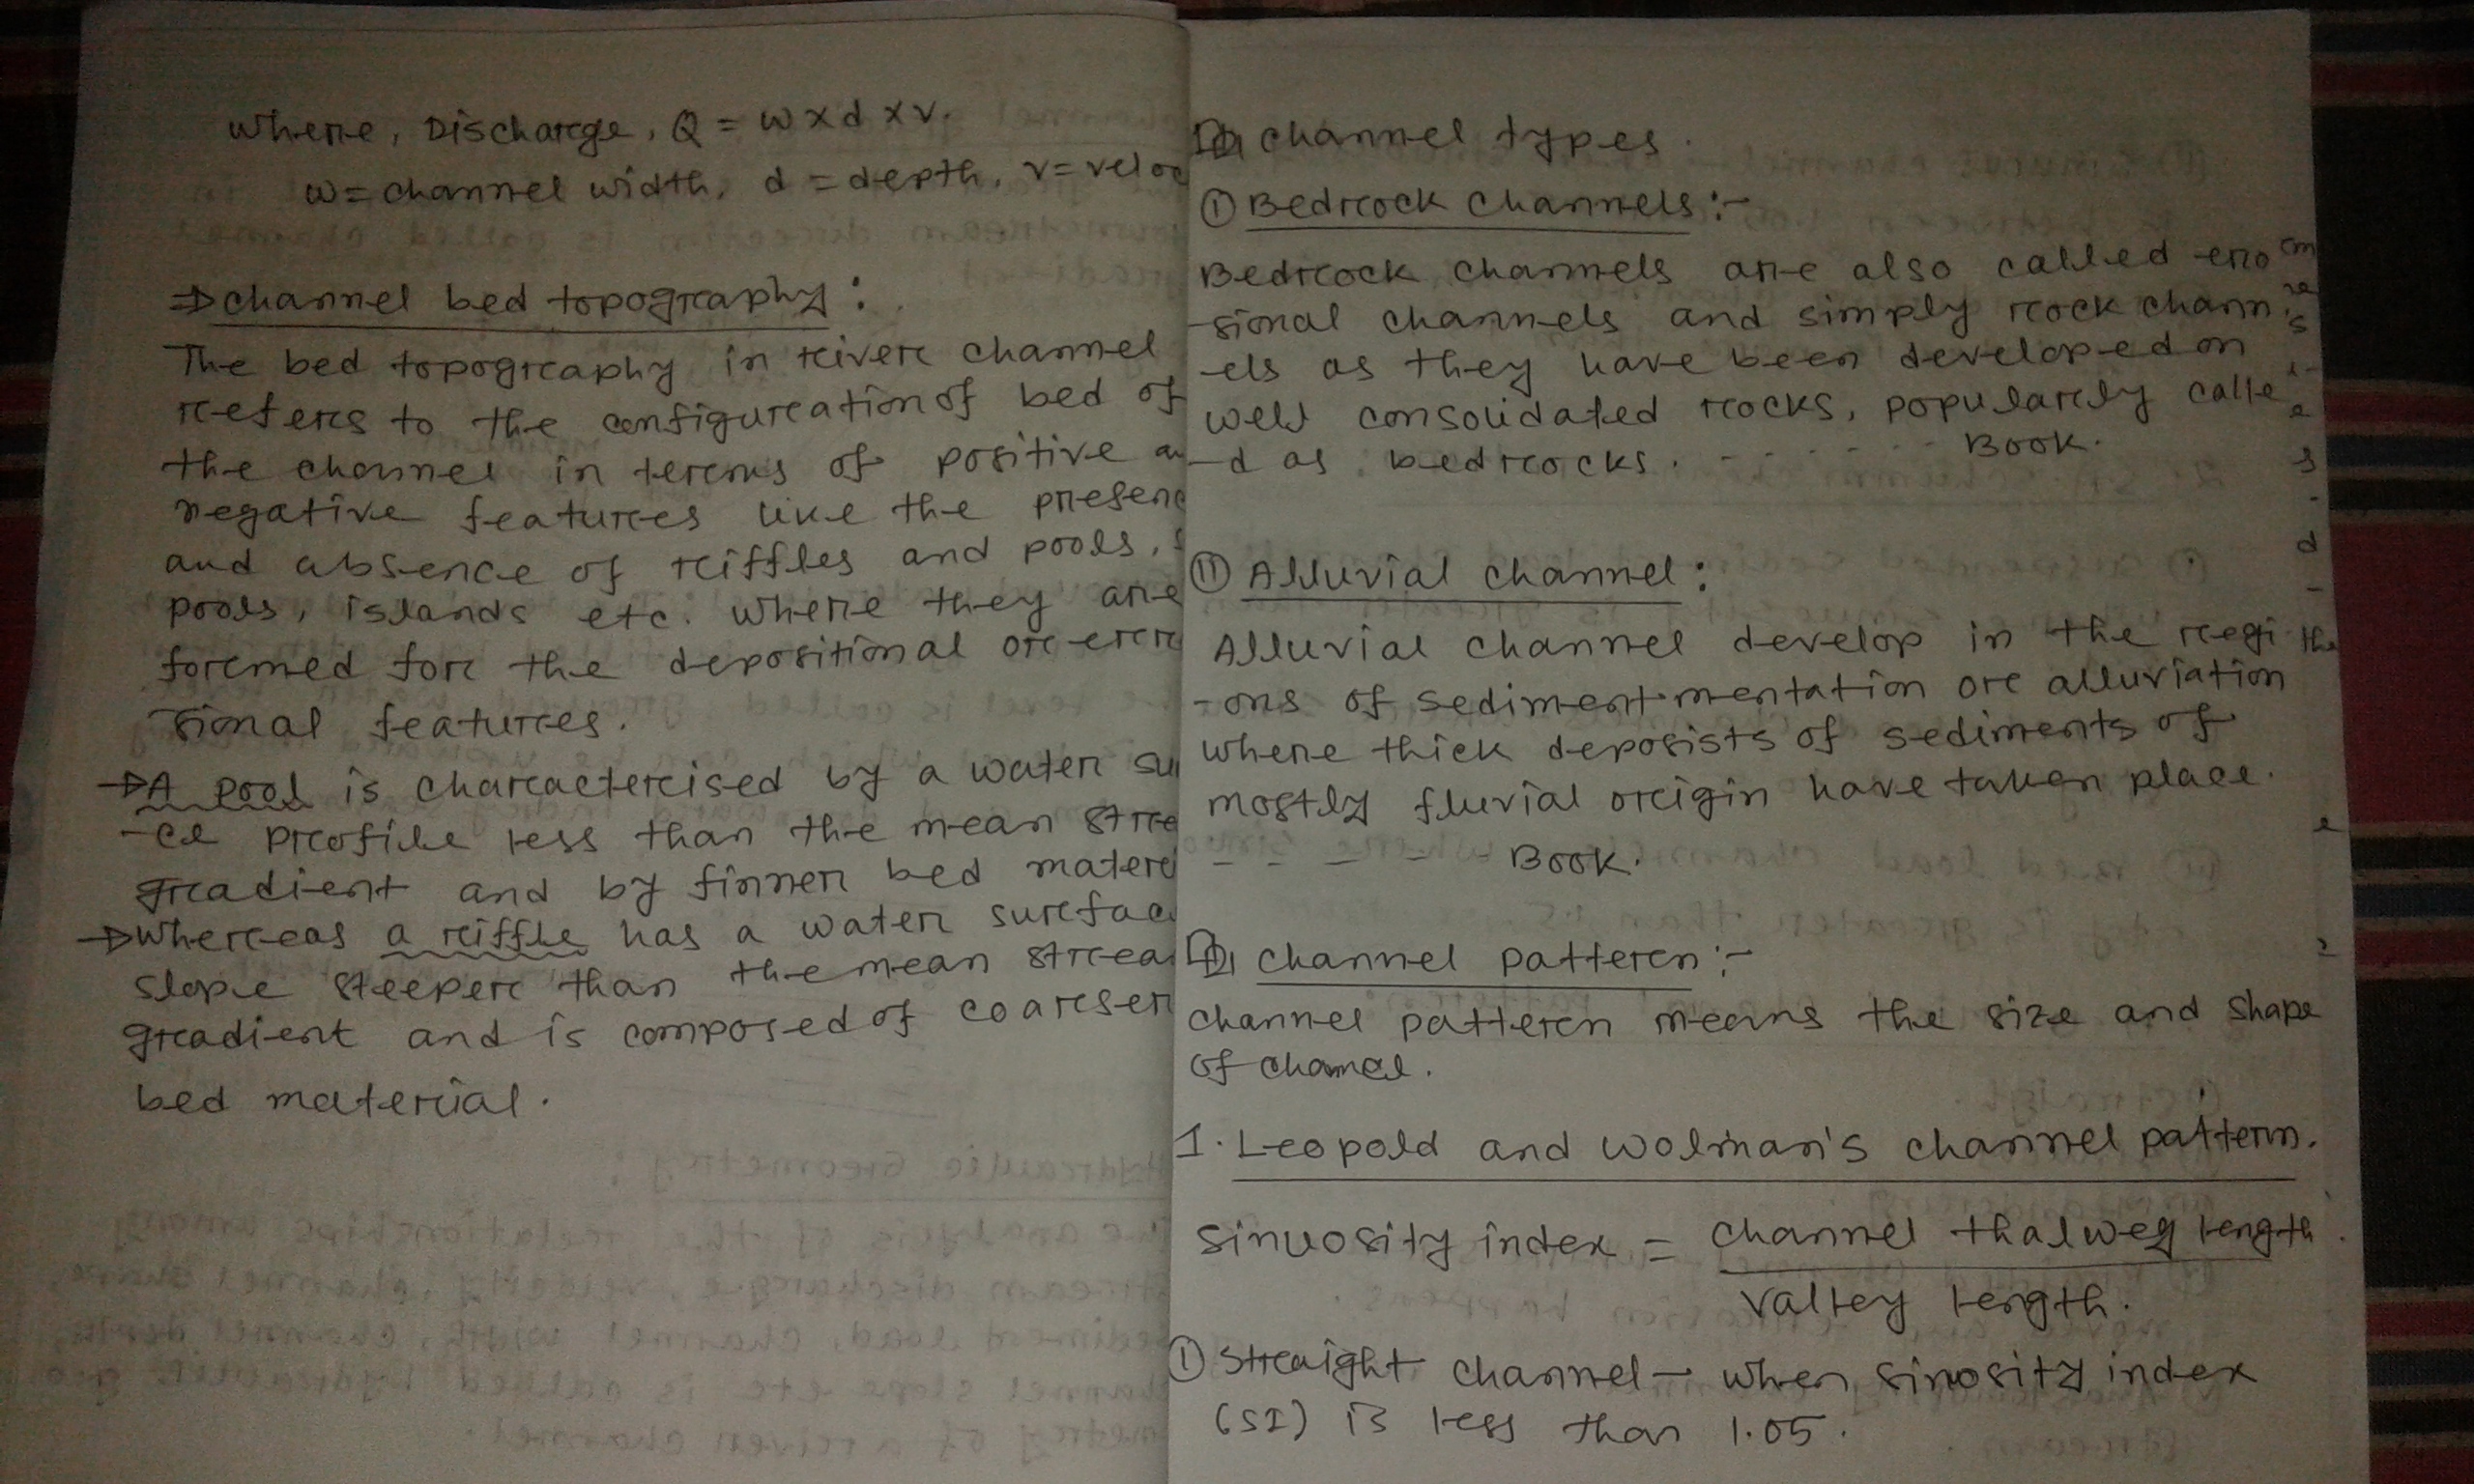 where, Discharge, Q = w x d x v.
w = channel width, d = depth, v = veloc
⇒ channel bed topography :
The bed topography in river channel
refers to the configuration of bed of
the channel in terms of positive an
negative features like the presenc
and absence of riffles and pools,
pools, islands etc. where they are
formed for the depositional or erro
sional features.
→ A pool is characterised by a water su
-ce profile less than the mean stre
gradient and by finner bed materi
→ whereas a riffle has a water surfac
slope steeper than the mean strea
gradient and is composed of coarser
bed material.
channel types.
① Bedrock channels :-
Bedrock channels are also called ero
-sional channels and simply rock chann
-els as they have been developed on
well consolidated rocks, popularly calle
-d as bedrocks. - - - - - - Book.
② Alluvial channel :
Alluvial channel develop in the regi
-ons of sediment mentation or alluviation
where thick deposists of sediments of
mostly fluvial origin have taken place.
- - - - - Book.
channel pattern :-
channel pattern means the size and shape
of channel.
1. Leopold and wolman's channel pattern.
sinuosity index = channel thalweg length
valley length.
① straight channel - when sinosity index
(SI) is less than 1.05.